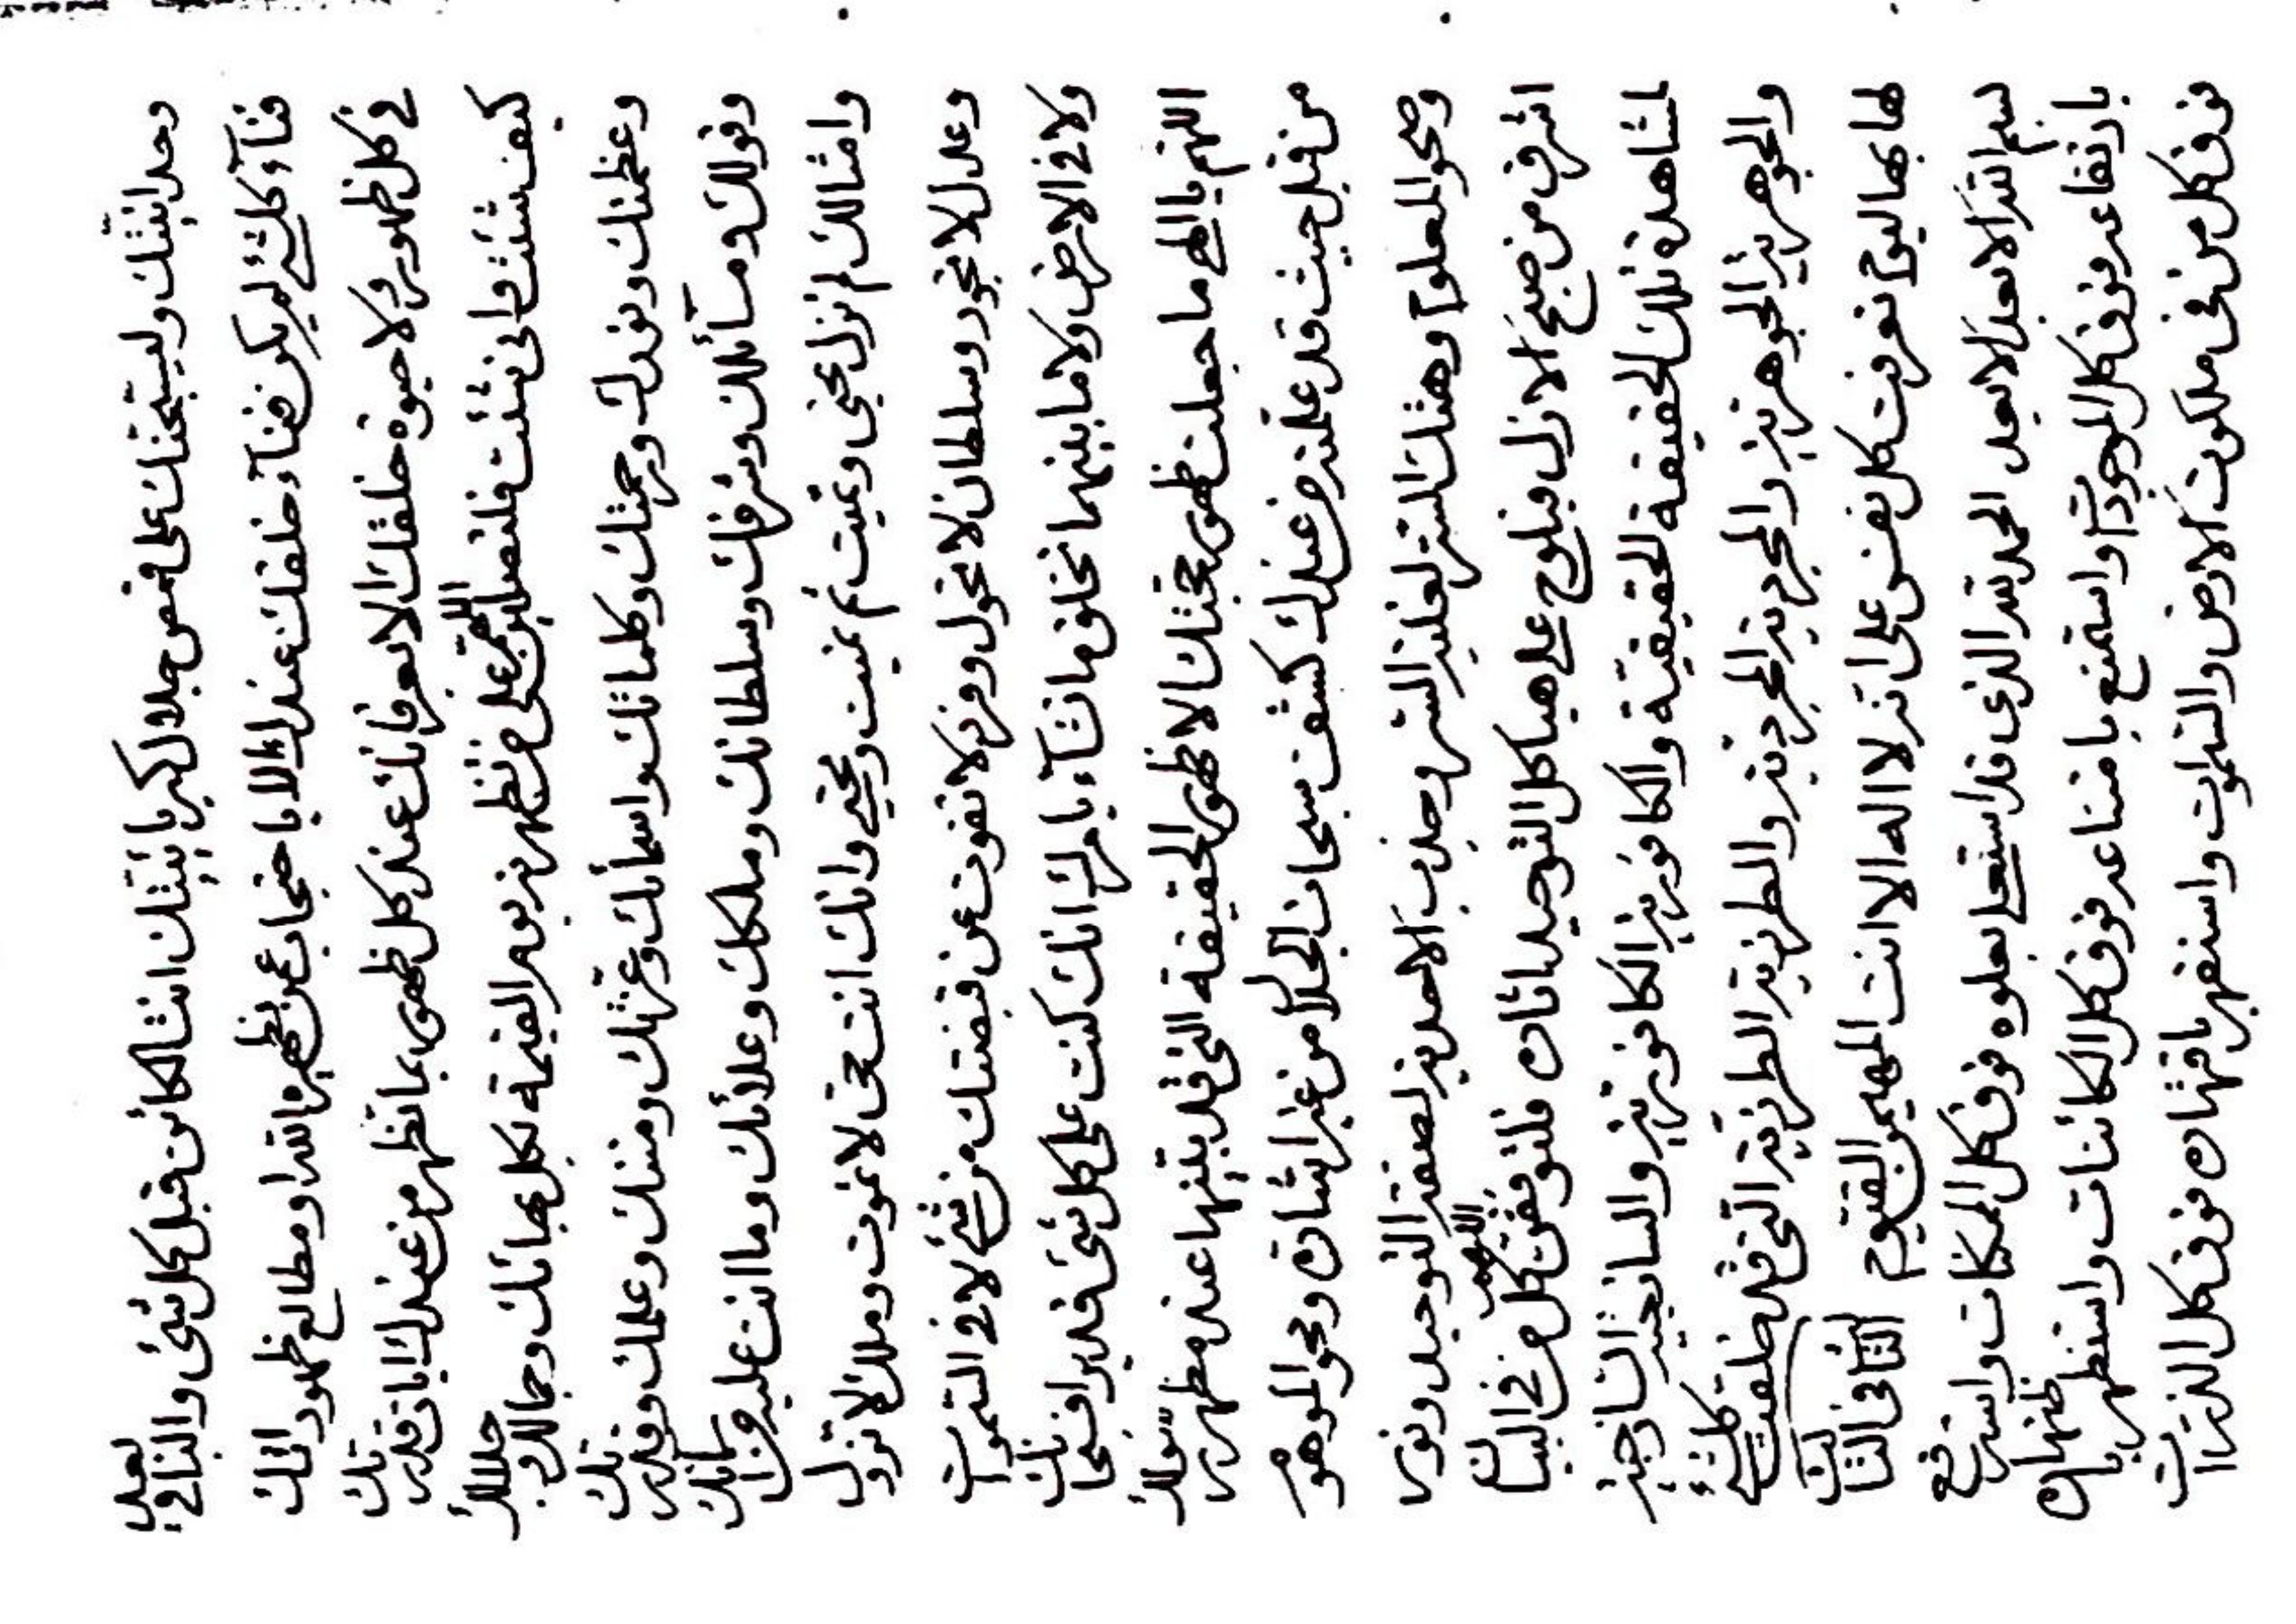 وحدانيتك وليسبحنك على قمص جلال كبريائيتك انت الكائن قبل كل شئ والباقي بعد
فناء كلشئ لم يكن فناء خلقك عندك الا باحتجابه عن مظهر امرك او مطالع ظهورك انك
في كل ظهور ولا حيوة خلقك الا بعرفانك عند كل ظهور بما تظهر من عندك اياز قدرتك
كيف شئت وانى شئت فلتصلين اللهم على من تظهرنه يوم القيمة بكل بهائك وجمالك وجلالك
وعظمتك ونورك ورحمتك وكلماتك واسمائك وعزتك ومشيتك وعلمك وقدرتك
وقولك ومسائلك وشرفك وسلطانك وملكك وعلائك وما انت عليه من اسمائك
وامثالك لم تزل تحيي وتميت ثم تميت وتحيي وانك انت حي لا تموت وملك لا تزول
وعدل لا تجور وسلطان لا تحول وفرد لا تفوت عن قبضتك من شئ لا في السموات
ولا في الارض ولا ما بينهما تخلق ما تشاء بامرك انك كنت على كل شئ قديرا فسبحانك
اللهم يا الهي ما جعلت ظهور حجتك الا ظهور الحقيقة التي قد بينتها عند مظهر رسولك
من قبل حيث قد علمته من عندك كشف سبحات الجلال من غير اشارة ومحو الموهوم
وصحو المعلوم وهتك الستر لغلبة السر وجذب الاحدية لصفة التوحيد ونور
اشرق من صبح الازل فيلوح على هياكل التوحيد اثاره فلتوفقن اللهم كل من في البيان
لمشاهدة تلك الحقيقة الحقيقية والكافورية الكافورية والساذجية الساذجية
والجوهرية الجوهرية والمجردية المجردية والطرزية الطرزية التي قد خلقت كلشئ
لها بها اليوم تعرفت كل نفس على انه لا اله الا انت المهيمن القيوم الثاني في الثالث
بسم الله الابعد الابعد الحمد لله الذي قد استعلى بعلوه فوق كل الممكنات واسترفع
بارتفاعه فوق كل الموجودات واستمنع بامتناعه فوق كل الكائنات واستظهر باظهاره
فوق كل من في ملكوت الارض والسموات واستقهر باقتهاره فوق كل الذرات